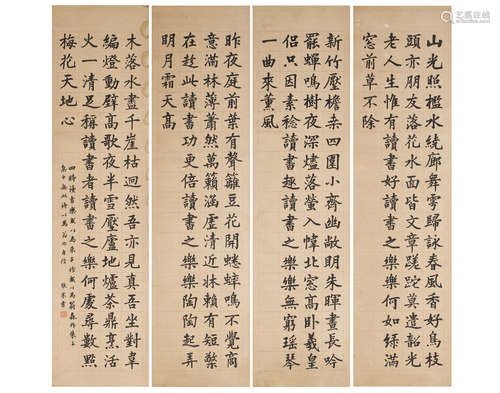 山光照檻水繞廊舞雩歸詠春風香好鳥枝
頭亦朋友落花水面皆文章蹉跎莫遣韶光
老人生惟有讀書好讀書之樂樂何如綠滿
窗前草不除
新竹壓檐桑四圍小齋幽敞明朱暉晝長吟
罷蟬鳴樹夜深燼落螢入幃北窓高臥羲皇
侶只因素稔讀書趣讀書之樂樂無窮瑤琴
一曲來薰風
昨夜庭前葉有聲籬豆花開蟋蟀鳴不覺商
意滿林薄蕭然萬籟涵虛清近牀賴有短檠
在趁此讀書功更倍讀書之樂樂陶陶起弄
明月霜天高
木落水盡千崖枯迥然吾亦見真吾坐對韋
編燈動壁高歌夜半雪壓廬地爐茶鼎烹活
火一清足稱讀書者讀書之樂何處尋數點
梅花天地心
四時讀書樂或以為朱子作或以為翁森作朱子
集中無此詩以為翁作